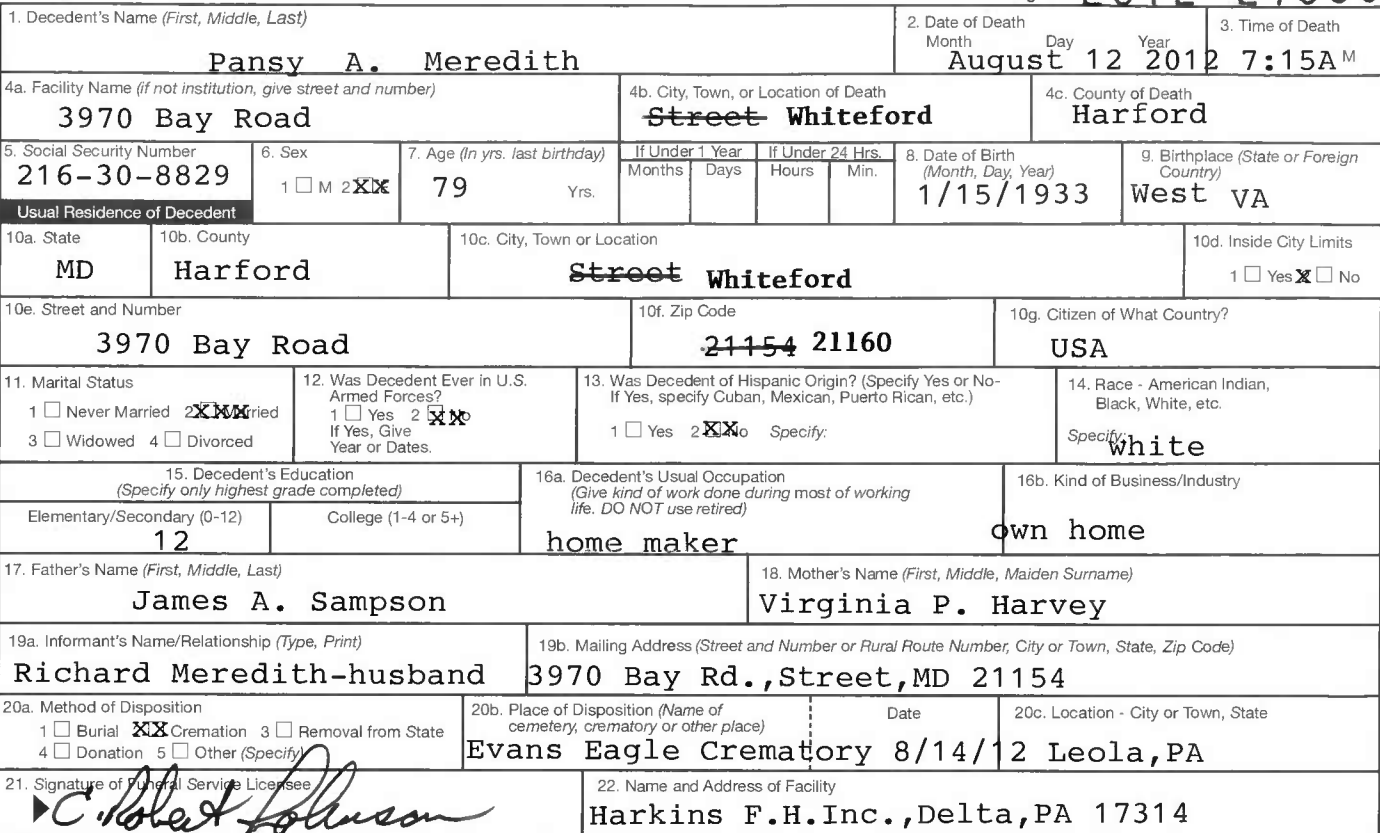 1. Decedent's Name (First, Middle, Last)
Pansy A. Meredith
2. Date of Death
Month Day Year
August 12 2012
3. Time of Death
7:15A M
4a. Facility Name (if not institution, give street and number)
3970 Bay Road
4b. City, Town, or Location of Death
Street Whiteford
4c. County of Death
Harford
5. Social Security Number
216-30-8829
6. Sex
1 M 2 XX
7. Age (In yrs. last birthday)
79 Yrs.
If Under 1 Year
Months Days
If Under 24 Hrs.
Hours Min.
8. Date of Birth
(Month, Day, Year)
1/15/1933
9. Birthplace (State or Foreign
Country)
West VA
Usual Residence of Decedent
10a. State
MD
10b. County
Harford
10c. City, Town or Location
Street Whiteford
10d. Inside City Limits
1 Yes X No
10e. Street and Number
3970 Bay Road
10f. Zip Code
21154 21160
10g. Citizen of What Country?
USA
11. Marital Status
1 Never Married 2 XXX Married
3 Widowed 4 Divorced
12. Was Decedent Ever in U.S.
Armed Forces?
1 Yes 2 XX No
If Yes, Give
Year or Dates.
13. Was Decedent of Hispanic Origin? (Specify Yes or No-
If Yes, specify Cuban, Mexican, Puerto Rican, etc.)
1 Yes 2 XX No Specify:
14. Race - American Indian,
Black, White, etc.
Specify: white
15. Decedent's Education
(Specify only highest grade completed)
Elementary/Secondary (0-12)
12
College (1-4 or 5+)
16a. Decedent's Usual Occupation
(Give kind of work done during most of working
life. DO NOT use retired)
home maker
16b. Kind of Business/Industry
own home
17. Father's Name (First, Middle, Last)
James A. Sampson
18. Mother's Name (First, Middle, Maiden Surname)
Virginia P. Harvey
19a. Informant's Name/Relationship (Type, Print)
Richard Meredith-husband
19b. Mailing Address (Street and Number or Rural Route Number, City or Town, State, Zip Code)
3970 Bay Rd.,Street,MD 21154
20a. Method of Disposition
1 Burial XX Cremation 3 Removal from State
4 Donation 5 Other (Specify)
20b. Place of Disposition (Name of
cemetery, crematory or other place)
Evans Eagle Crematory
Date
8/14/12
20c. Location - City or Town, State
Leola,PA
21. Signature of Funeral Service Licensee
C. Robert Johnson
22. Name and Address of Facility
Harkins F.H.Inc.,Delta,PA 17314